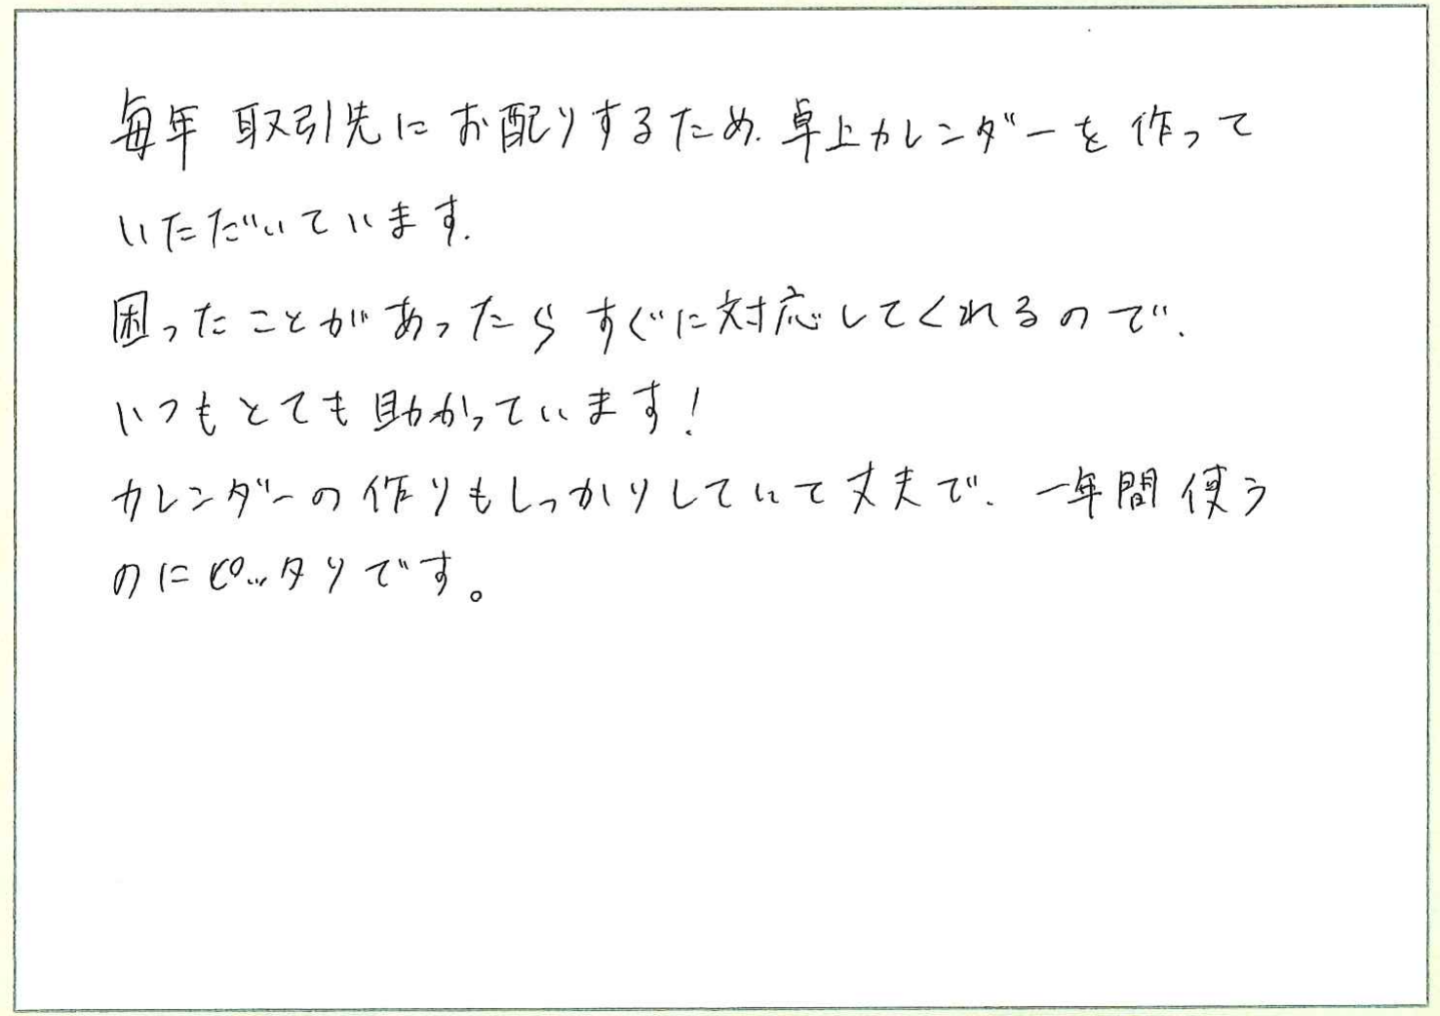 毎年 取引先に お配りするため、卓上カレンダーを 作って
いただいています。
困ったことがあったら すぐに対応してくれるので、
いつもとても助かっています!
カレンダーの作りもしっかりしていて丈夫で、一年間 使う
のにピッタリです。